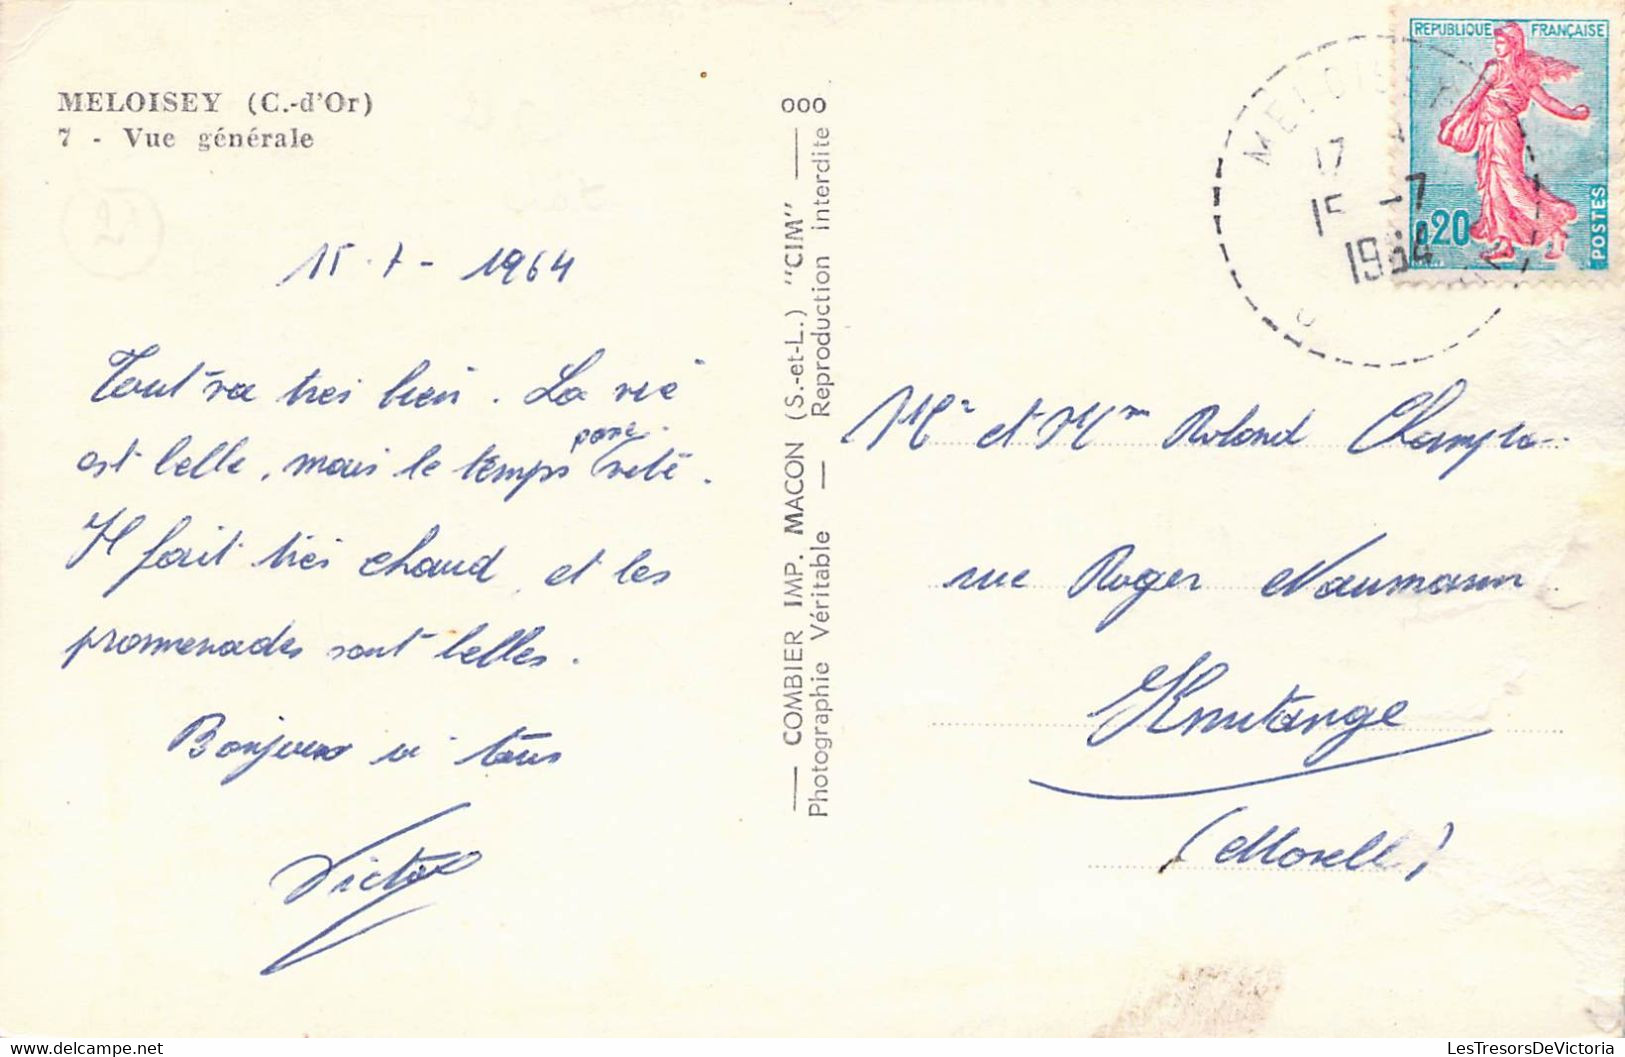 MELOISEY (C.-d'Or)
7 - Vue générale
15-7-1964
Tout va très bien. La vie
est belle, mais le temps passe vite.
Il fait très chaud, et les
promenades sont belles.
Bonjour à tous
Victor
COMBIER IMP. MACON (S.-et-L.) "CIM"
Photographie Véritable — Reproduction interdite
000
MELOISEY
17
15 -7
1964
REPUBLIQUE FRANÇAISE
0,20
POSTES
Mr et Mm Roland
rue Roger Naumann
Knutange
(Moselle)
LesTresorsDeVictoria.com
LesTresorsDeVictoria